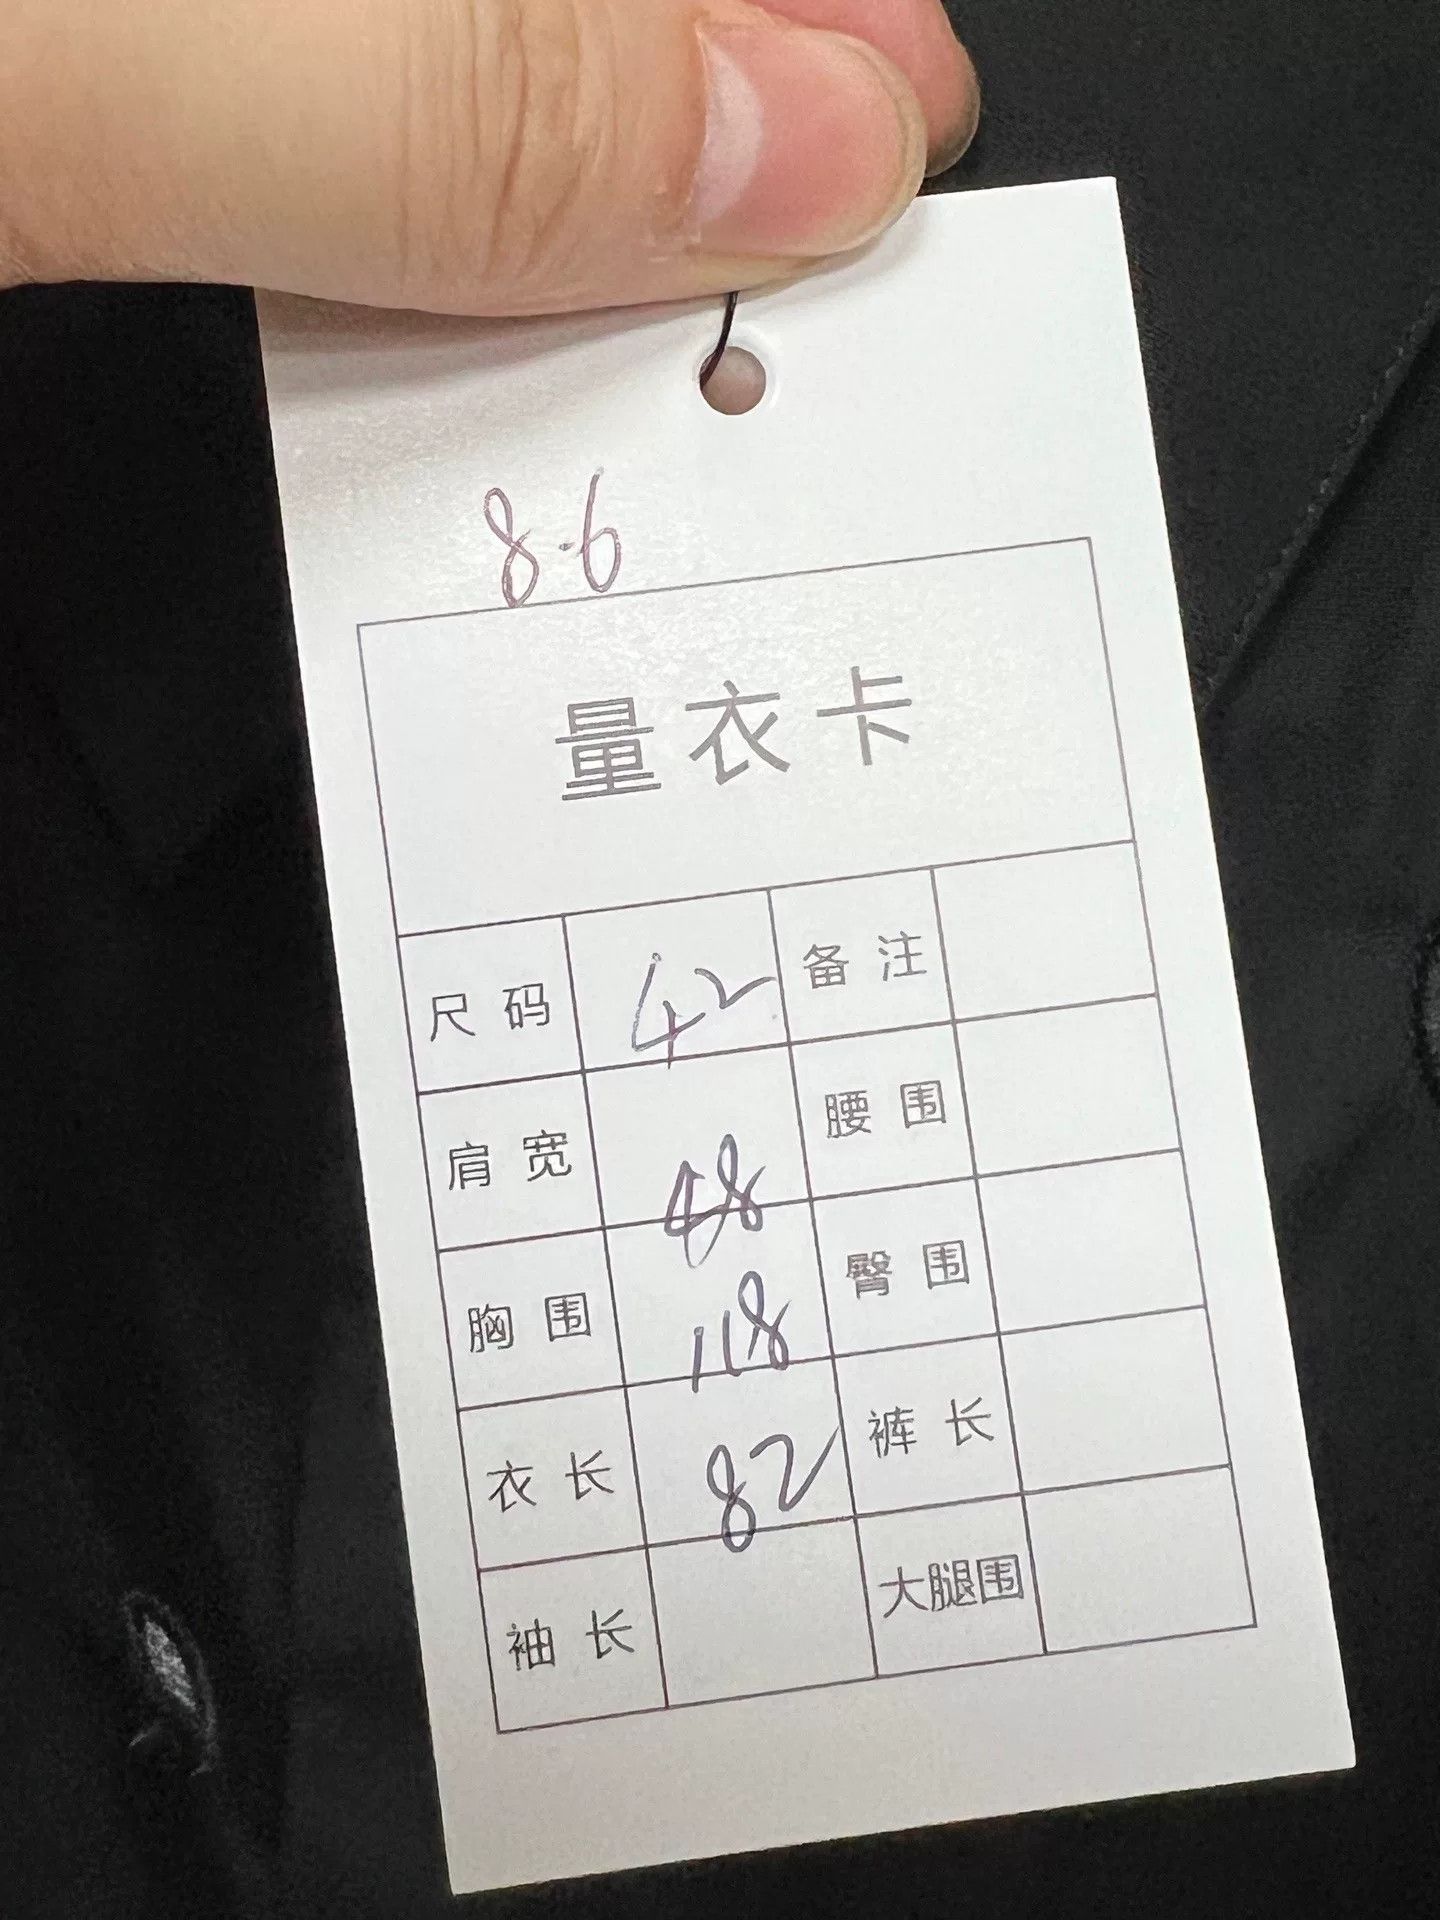 8.6
量衣卡
尺码 42 备注
肩宽 48 腰围
胸围 118 臀围
衣长 82 裤长
袖长 大腿围